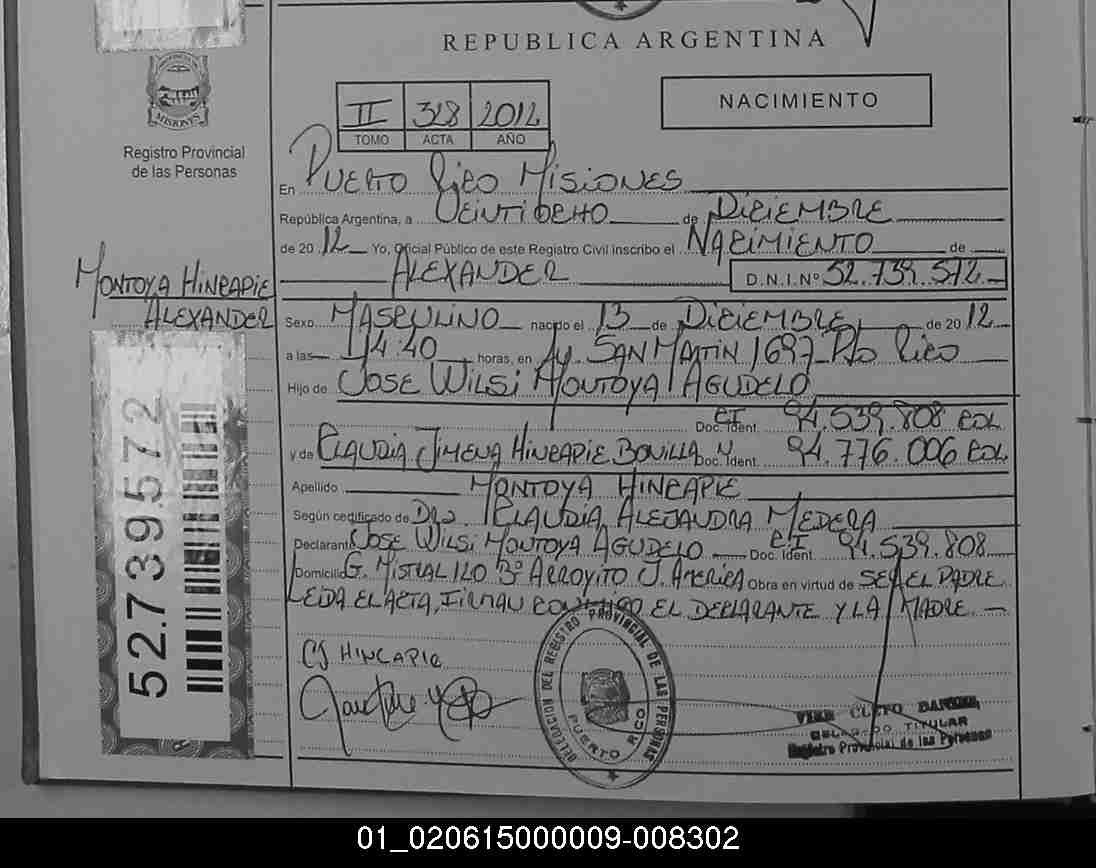 REPUBLICA ARGENTINA
PROVINCIA DE
MISIONES
Registro Provincial
de las Personas
II 328 2012
TOMO ACTA AÑO
NACIMIENTO
En PUERTO RICO MISIONES
República Argentina, a VEINTIOCHO de DICIEMBRE
de 2012 Yo, Oficial Público de este Registro Civil inscribo el NACIMIENTO de
ALEXANDER D.N.I.Nº 52.739.572
MONTOYA HINCAPIE
ALEXANDER
Sexo MASCULINO nacido el 13 de DICIEMBRE de 2012
a las 14:40 horas, en AV. SAN MARTIN 1697 Pto RICO
Hijo de JOSE WILSI MONTOYA AGUDELO
Doc. Ident. CI 94.539.808 COL
y de CLAUDIA JIMENA HINCAPIE BONILLA Doc. Ident. 94.776.006 COL
Apellido MONTOYA HINCAPIE
Según certificado de Dra. CLAUDIA ALEJANDRA MEDERA
Declarante JOSE WILSI MONTOYA AGUDELO Doc. Ident. CI 94.539.808
Domicilio G. MISTRAL 120 Bº ARROYITO J. AMERICA Obra en virtud de SER EL PADRE
LEIDA EL ACTA, FIRMAN CONMIGO EL DECLARANTE Y LA MADRE
CJ HINCAPIE
52.739.572
DELEGACION DEL REGISTRO PROVINCIAL DE LAS PERSONAS
PUERTO RICO
DELEGADO TITULAR
Registro Provincial de las Personas
01_020615000009-008302